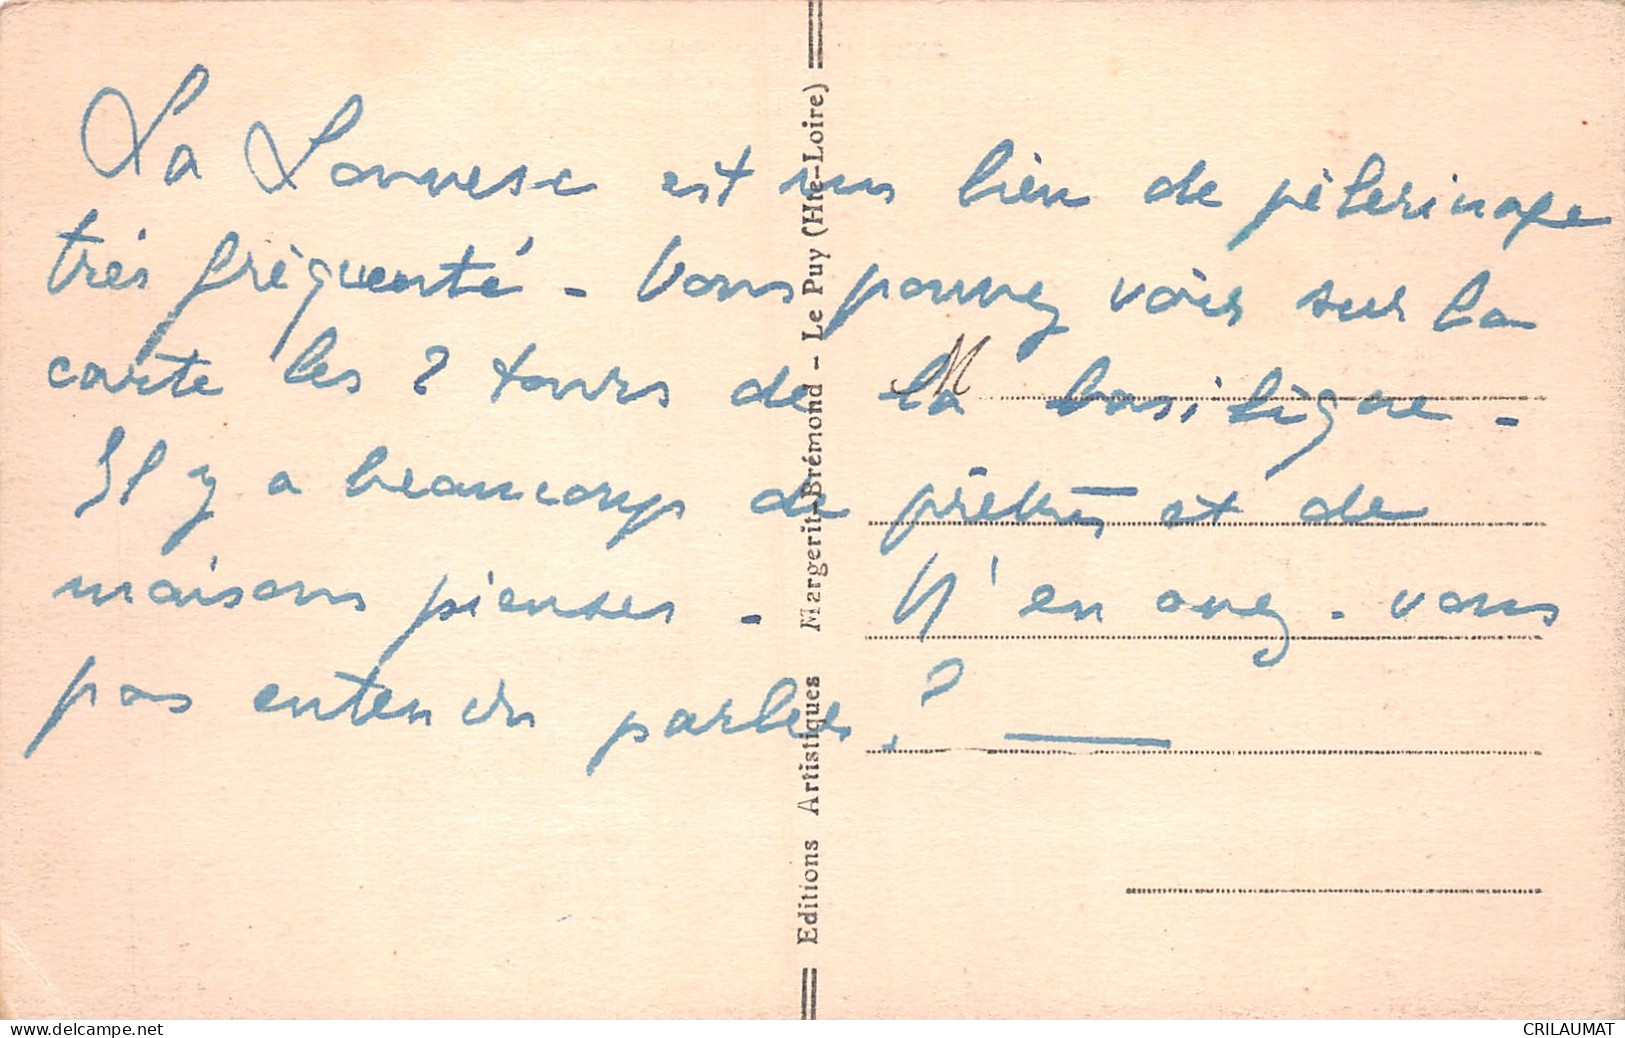 La Louvesc est un lieu de pèlerinage
très fréquenté - Vous pouvez voir sur la
carte les 2 tours de la basilique -
Il y a beaucoup de prêtres et de
maisons pieuses - N'en avez-vous
pas entendu parler ?
M
Editions Artistiques Margerit-Brémond - Le Puy (Hte-Loire)
www.delcampe.net
CRILAUMAT